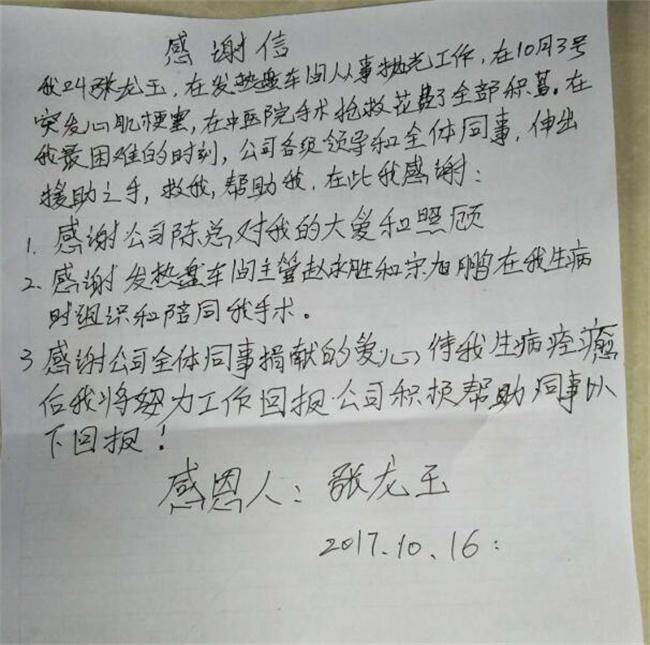 感谢信
我叫张龙玉，在发热盘车间从事抛光工作，在10月3号
突发心肌梗塞，在中医院手术抢救花费了全部积蓄。在
我最困难的时刻，公司各级领导和全体同事，伸出
援助之手，救我，帮助我，在此我感谢：
1. 感谢公司陈总对我的大爱和照顾
2. 感谢发热盘车间主管赵永胜和宗旭鹏在我生病
时组织和陪同我手术。
3 感谢公司全体同事捐献的爱心，待我生病痊愈
后我将努力工作回报公司积极帮助同事以
下回报！
感恩人：张龙玉
2017.10.16: